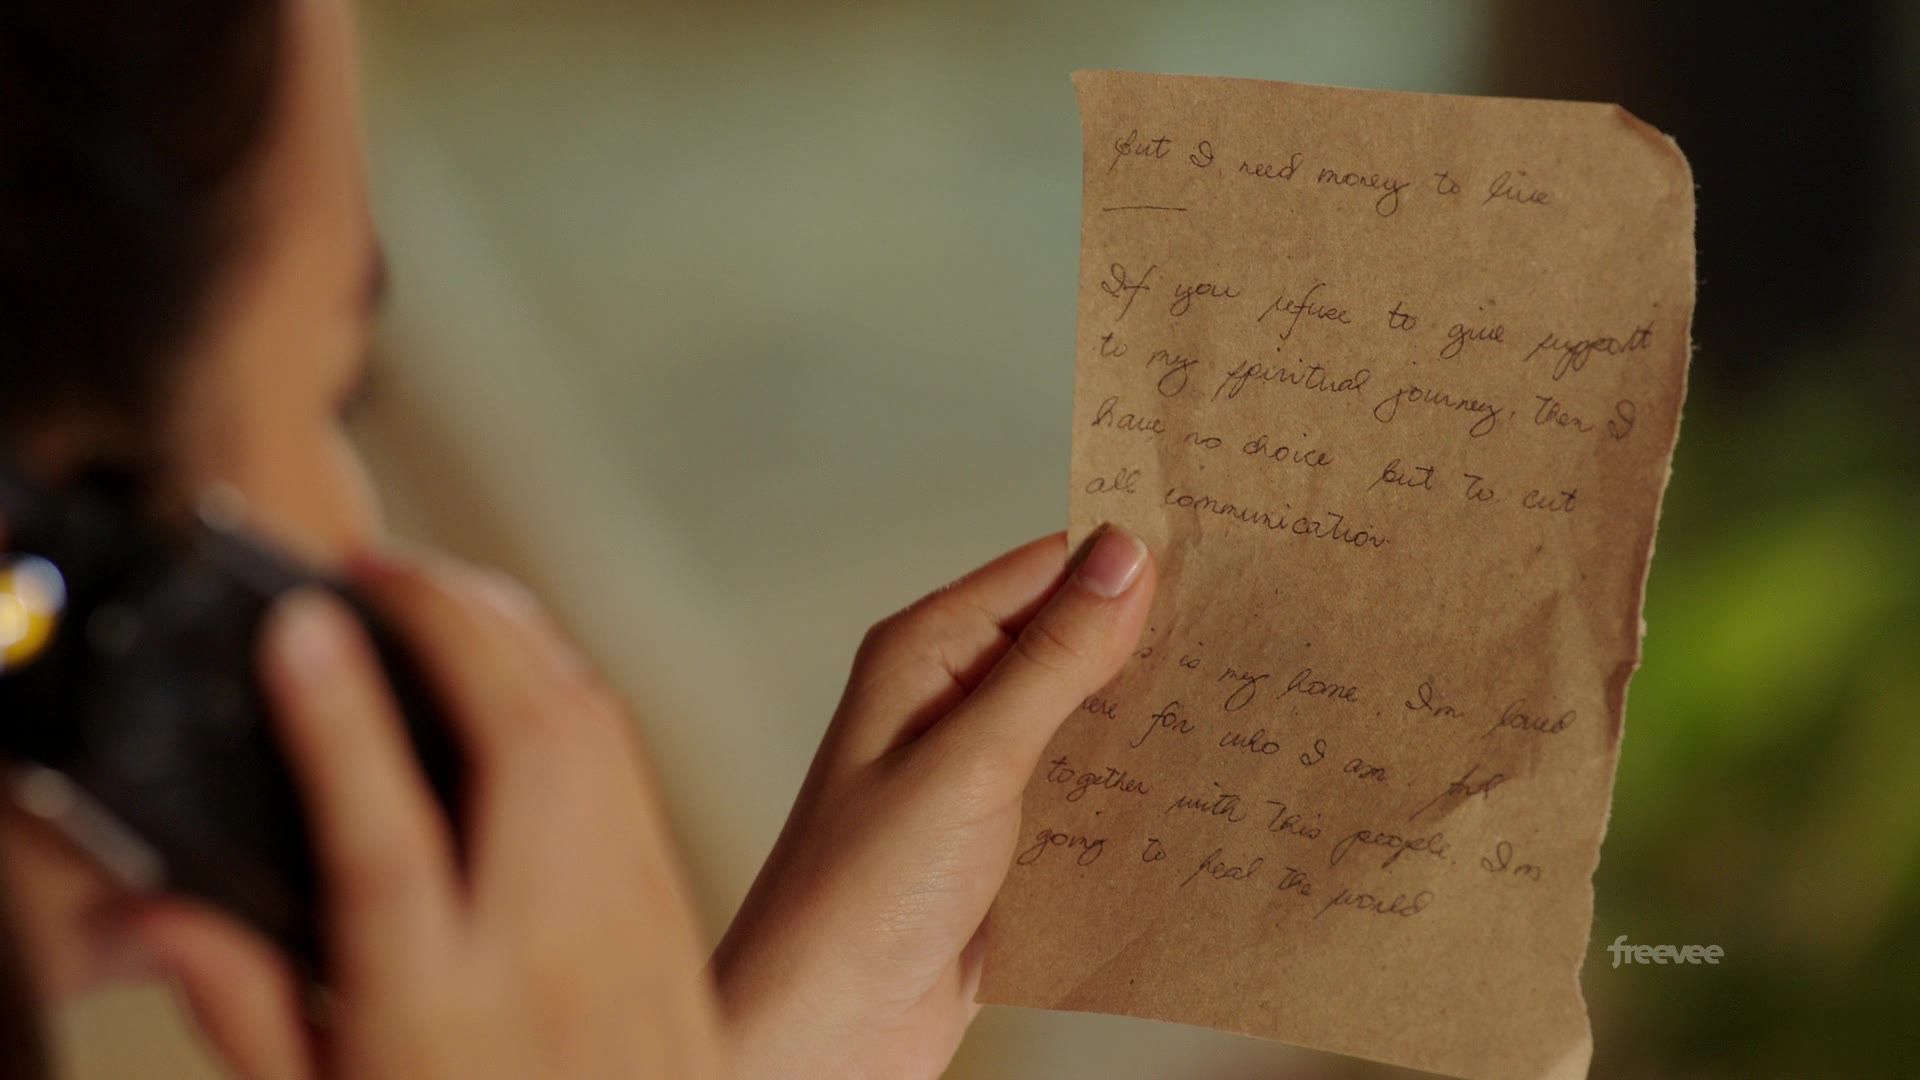 but I need money to live
If you refuse to give support
to my spiritual journey, then I
have no choice but to cut
all communication.
is my home. I'm loved
for who I am. And
together with this people. I'm
going to heal the world
freevee